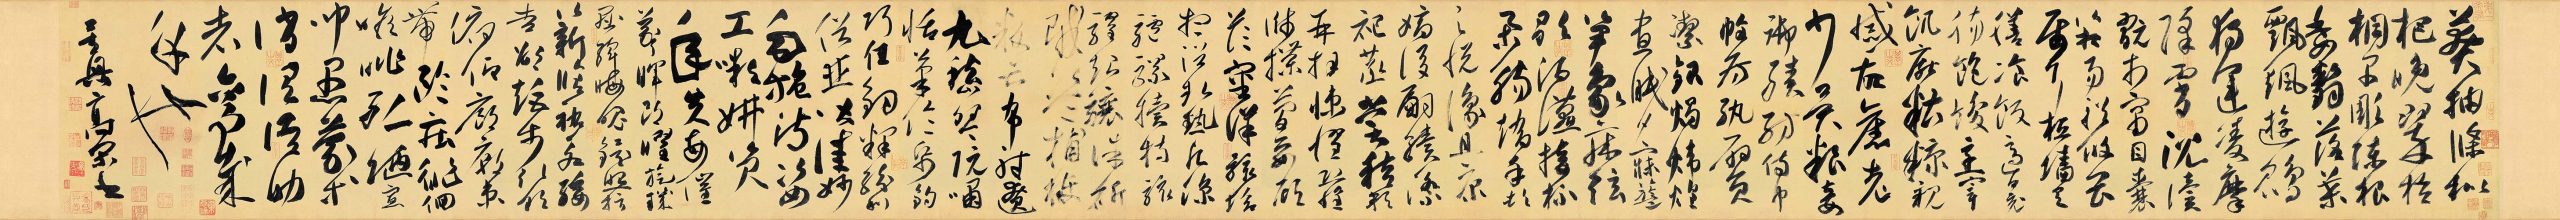 莽抽條枇
杷晚翠梧
桐早彫陳根
委翳落葉
飄颻遊鵾
獨運凌摩
絳霄耽讀
翫市寓目囊
箱易輶攸畏
屬耳垣墻具
膳飡飯適口充
腸飽飫烹宰
飢厭糟糠親
戚故舊老
少異粮妾
御績紡侍巾
帷房紈扇員
潔銀燭煒煌
晝眠夕寐藍
笋象床弦
歌酒讌接杯
舉觴矯手頓
足悅豫且康
嫡後嗣續祭
祀蒸嘗稽顙
再拜悚懼恐
惶牋牒簡要顧
答審詳骸垢
想浴執熱願涼
驢騾犢特駭
躍超驤誅斬
賊盜捕獲
叛亡布射遼
丸嵇琴阮嘯
恬筆倫紙鈞
巧任釣釋紛利
俗並皆佳妙
毛施淑姿
工嚬妍笑
年矢每催
羲暉朗曜琁璣
懸斡晦魄環照指
薪脩祜永綏
吉劭矩步引領
俯仰廊廟束
帶矜莊徘徊
瞻眺孤陋寡
聞愚蒙等
誚謂語助
者焉哉乎
也
吳興高